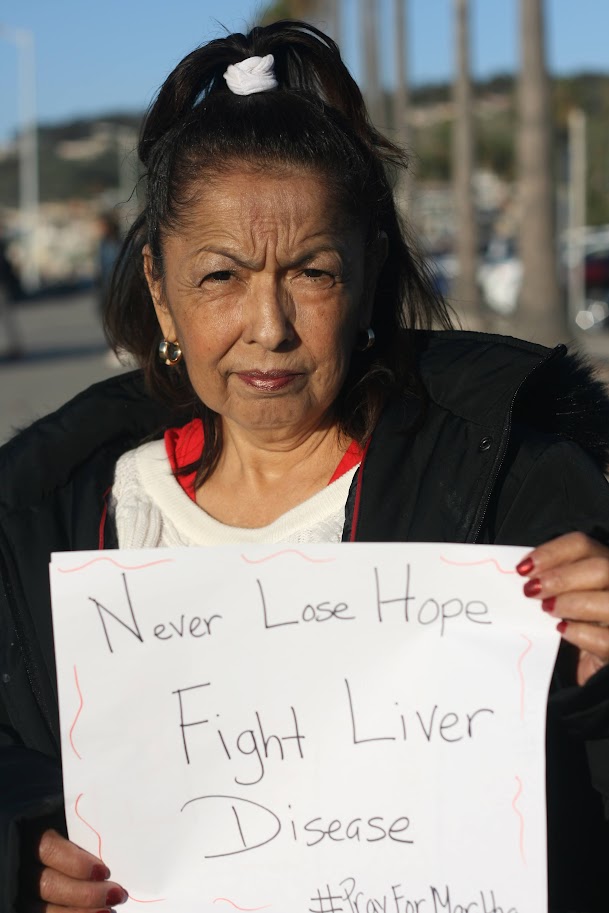 Never Lose Hope
Fight Liver
Disease
#PrayForMartha